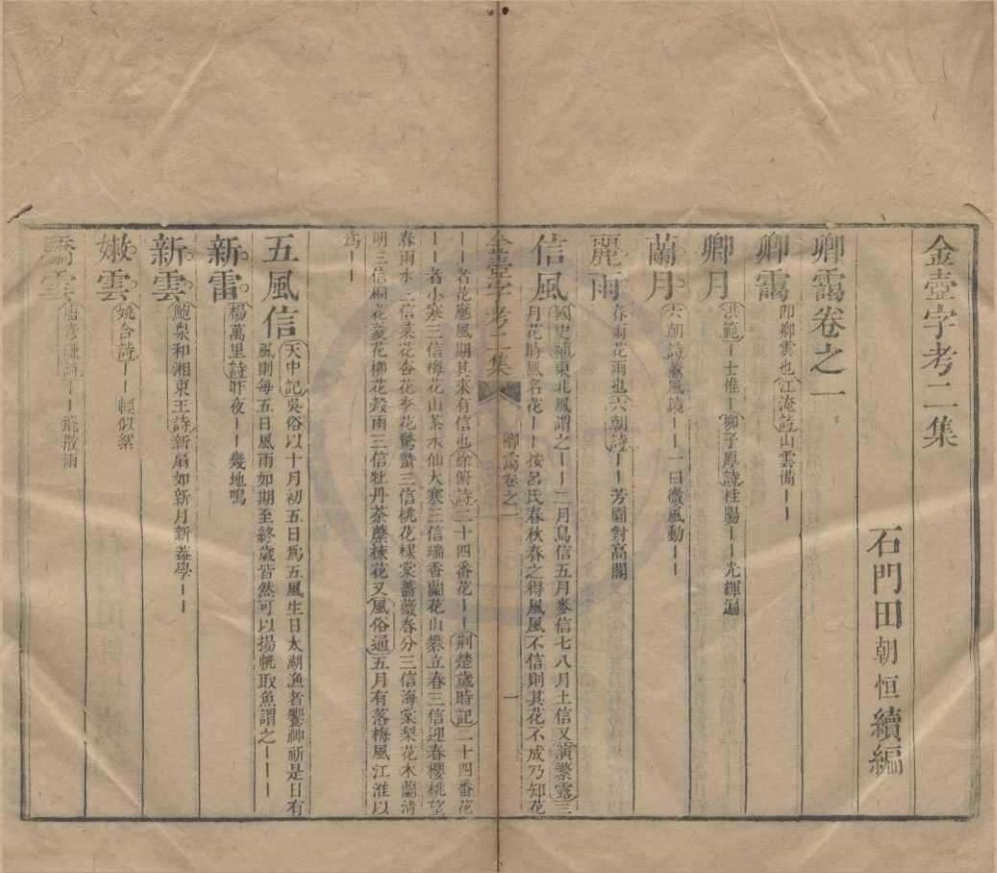 金壺字考二集
石門田朝恒續編
卿靄卷之一
卿靄 即卿雲也江淹詩山雲備丨丨
卿月 洪範丨士惟丨柳子厚詩桂陽丨丨光輝遍
蘭月 六朝詩 丨丨一曰微風動丨丨
麗雨 春雨花雨也六朝詩丨丨芳園對高閣
信風 國史補東北風謂之丨丨二月鳥信五月麥信七八月土信又演繁露三
月花時風名花丨丨按呂氏春秋春之得風風不信則其花不成乃知花
丨丨者花應風期其來有信也徐俯詩二十四番花丨丨荆楚歲時記二十四番花
丨丨者小寒三信梅花山茶水仙大寒三信瑞香蘭花山礬立春三信迎春櫻桃望
春雨水三信菜花杏花李花驚蟄三信桃花棣棠薔薇春分三信海棠梨花木蘭清
明三信桐花菱花柳花穀雨三信牡丹荼蘼楝花又風俗通五月有落梅風江淮以
爲丨丨
金壺字考二集 卿靄卷之一 一
五風信 天中記吳俗以十月初五日爲五風生日太湖漁者饗神祈是日有
風則每五日風雨如期至終歲皆然可以揚帆取魚謂之丨丨丨
新雷 楊萬里詩昨夜丨丨幾地鳴
新雲 鮑泉和湘東王詩新扇如新月新蓋學丨丨
嫩雲 姚合詩丨丨輕似絮
喬雲 丨丨飛散雨